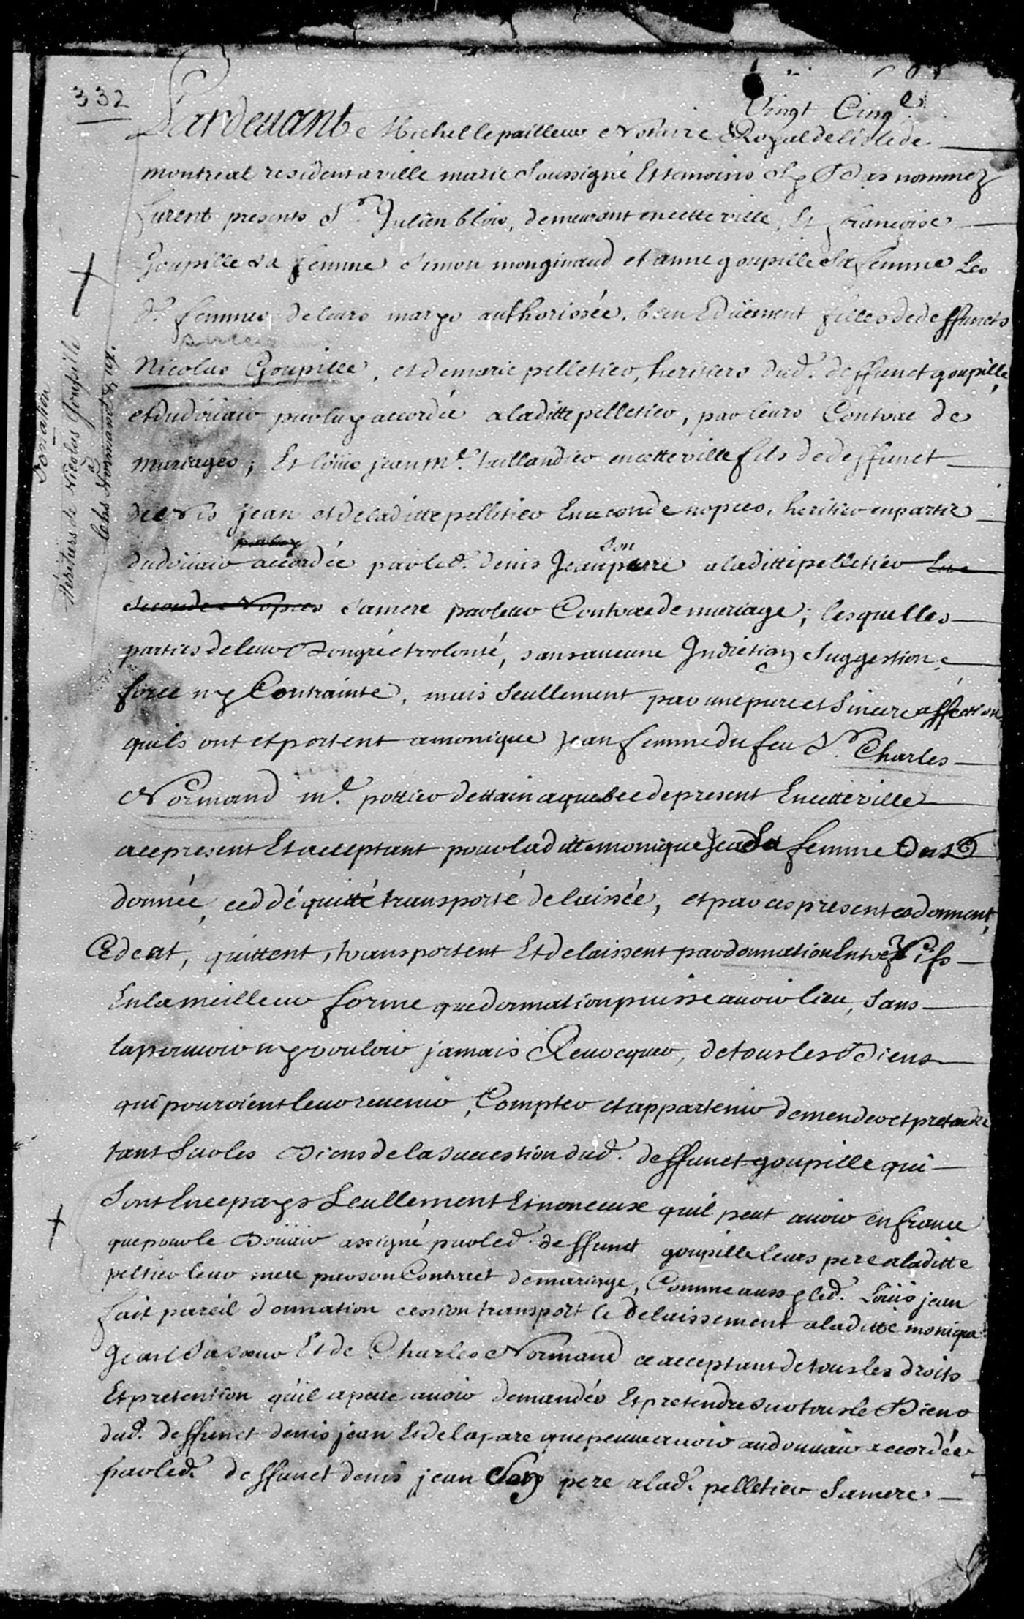 332
Vingt Cinq.e
Pardevant Michel lepailleur Nottaire Royal de lisle de
montreal resident a ville marie Soussigné Et temoins Cy Bas nommez
furent presents Sr. Julien blois, demeurant en cette ville, Et françoise
Goupille Sa femme Simon monginaud et anne goupille Sa femme Les
des. femmes de leurs marys authorisées, bien Et düement filles de deffunets
Nicolas Goupille, et de marie pelletier, heritiers dud. deffunet goupille,
et du düaire par luy accordée a laditte pelletier, par leurs Contrac de
mariages, Et Loüis jean me. taillandier en cette ville fils de deffunet
denis jean et de laditte pelletier En seconde nopces, heritier en partie
du doüaire accordée par led. denis Jean son pere a laditte pelletier
Seconde Nopces Sa mere par leur Contrac de mariage, lesquelles
parties de leur Bon gré et volonté, sans aucune Indiction Suggestion,
force ny Contrainte, mais Seullement par une pure et Sincere affection
quils ont et portent a monique jean femme du feu Sr. Charles
Normand me. pottier dettain a quebec de present En cette ville
a ce present Et acceptant pour laditte monique Jean Sa femme Ont
donnée, ceddé quitté transporté delaissée, et par ces presentes donnent,
Cedent, quittent, transportent Et delaissent par donnation Entre Vifs
En la meilleur forme que donnation puisse avoir lieu, Sans
la pouvoir ny vouloir jamais Revocquer, de tous les Biens
qui pouroient leur revenir, Compter et appartenir demender et pretendre
tant Sur les Biens de la Succession dud. deffunet goupille qui
Sont En ce pays Seullement Et non ceux quil peut avoir en france
que pour le Doüaire assigné par led. deffunet goupille leurs pere a laditte
peltier leur mere par son Contract de mariage, Comme aussy led. Loüis jean
fait pareil donnation cession transport Et delaissement a laditte monique
Jean Sa sœur Et de Charles Normand ce acceptant de tous les droits
Et pretention quil a peut avoir demander Et pretendre Sur tous le Biens
dud. deffunet denis jean Et de la pare que peut avoir au doüaire accordée
par led. deffunet denis jean Son pere a lad. pelletier Sa mere
Donation
Heritiers de Nicolas Goupille
à
Chs Normand & ux.